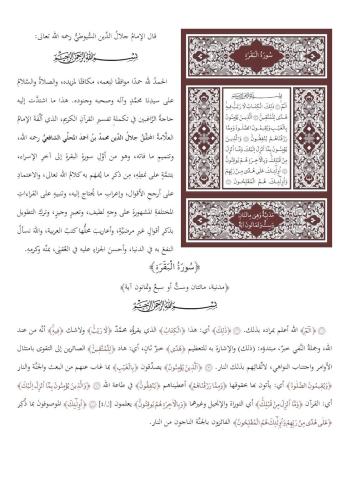 قال الإمامُ جلالُ الدِّين السُّيوطيُّ رحمه الله تعالى:
بِسْمِ اللَّهِ الرَّحْمَنِ الرَّحِيمِ
الحمدُ لله حمدًا موافيًا لنِعمه، مكافئًا لمزيده، والصلاةُ والسَّلامُ
على سيدنا محمَّدٍ وآله وصحبه وجنوده. هذا ما اشتدَّت إليه
حاجةُ الرَّاغبين في تكملة تفسيرِ القرآنِ الكريم، الذي ألَّفه الإمامُ
العلَّامةُ المحقِّقُ جلالُ الدِّين محمدُ بنُ أحمدَ المحلِّي الشافعيُّ رحمه الله،
وتتميمِ ما فاته، وهو من أوَّل سورةِ البقرة إلى آخر الإسراء،
بتتمَّةٍ على نمَطِه، مِن ذكر ما يُفهم به كلامُ الله تعالى، والاعتمادِ
على أرجح الأقوال، وإعرابِ ما يُحتاج إليه، وتنبيهٍ على القراءاتِ
المختلفةِ المشهورةِ على وجهٍ لطيف، وتعبيرٍ وجيز، وتركِ التطويل
بذكر أقوالٍ غيرِ مرضيَّة، وأعاريبَ محلُّها كتبُ العربية، واللهَ نسألُ
النفعَ به في الدنيا، وأحسنَ الجزاءِ عليه في العُقبى، بمنِّه وكرمِه.
سُورَةُ الْبَقَرَةِ
الٓمٓ ۝ ذَٰلِكَ الْكِتَابُ لَا رَيْبَ فِيهِ
هُدًى لِّلْمُتَّقِينَ ۝ الَّذِينَ يُؤْمِنُونَ
بِالْغَيْبِ وَيُقِيمُونَ الصَّلَوٰةَ وَمِمَّا
رَزَقْنَاهُمْ يُنفِقُونَ ۝ وَالَّذِينَ
يُؤْمِنُونَ بِمَا أُنزِلَ إِلَيْكَ وَمَا أُنزِلَ
مِن قَبْلِكَ وَبِالْآخِرَةِ هُمْ يُوقِنُونَ
۝ أُولَٰئِكَ عَلَىٰ هُدًى مِّن رَّبِّهِمْ
وَأُولَٰئِكَ هُمُ الْمُفْلِحُونَ ۝
﴿سُورَةُ الْبَقَرَةِ﴾
(مدنية، مائتان وستٌّ أو سبعٌ وثمانون آية)
بِسْمِ اللَّهِ الرَّحْمَنِ الرَّحِيمِ
۝ ﴿الٓمٓ﴾ الله أعلم بمراده بذلك. ۝ ﴿ذَٰلِكَ﴾ أي: هذا ﴿الْكِتَابُ﴾ الذي يقرؤه محمَّدٌ ﴿لَا رَيْبَ﴾ ولاشك ﴿فِيهِ﴾ أنَّه من عند
الله، وجملةُ النَّفي خبرٌ، مبتدؤه: (ذلك)، والإشارة به للتعظيم ﴿هُدًى﴾ خبرٌ ثانٍ، أي: هادٍ ﴿لِلْمُتَّقِينَ﴾ الصائرين إلى التقوى بامتثال
الأوامر واجتناب النواهي، لاتِّقائهم بذلك النار. ۝ ﴿الَّذِينَ يُؤْمِنُونَ﴾ يصدِّقون ﴿بِالْغَيْبِ﴾ بما غاب عنهم من البعث والجنَّة والنار
﴿وَيُقِيمُونَ الصَّلَوٰةَ﴾ أي: يأتون بها بحقوقها ﴿وَمِمَّا رَزَقْنَاهُمْ﴾ أعطيناهم ﴿يُنفِقُونَ﴾ في طاعة الله ۝ ﴿وَالَّذِينَ يُؤْمِنُونَ بِمَا أُنزِلَ إِلَيْكَ﴾
أي: القرآن ﴿وَمَا أُنزِلَ مِن قَبْلِكَ﴾ أي التوراة والإنجيل وغيرهما ﴿وَبِالْآخِرَةِ هُمْ يُوقِنُونَ﴾ يعلمون ۝ ﴿أُولَٰئِكَ﴾ الموصوفون بما ذُكر
﴿عَلَىٰ هُدًى مِّن رَّبِّهِمْ وَأُولَٰئِكَ هُمُ الْمُفْلِحُونَ﴾ الفائزون بالجنَّة الناجون من النار.